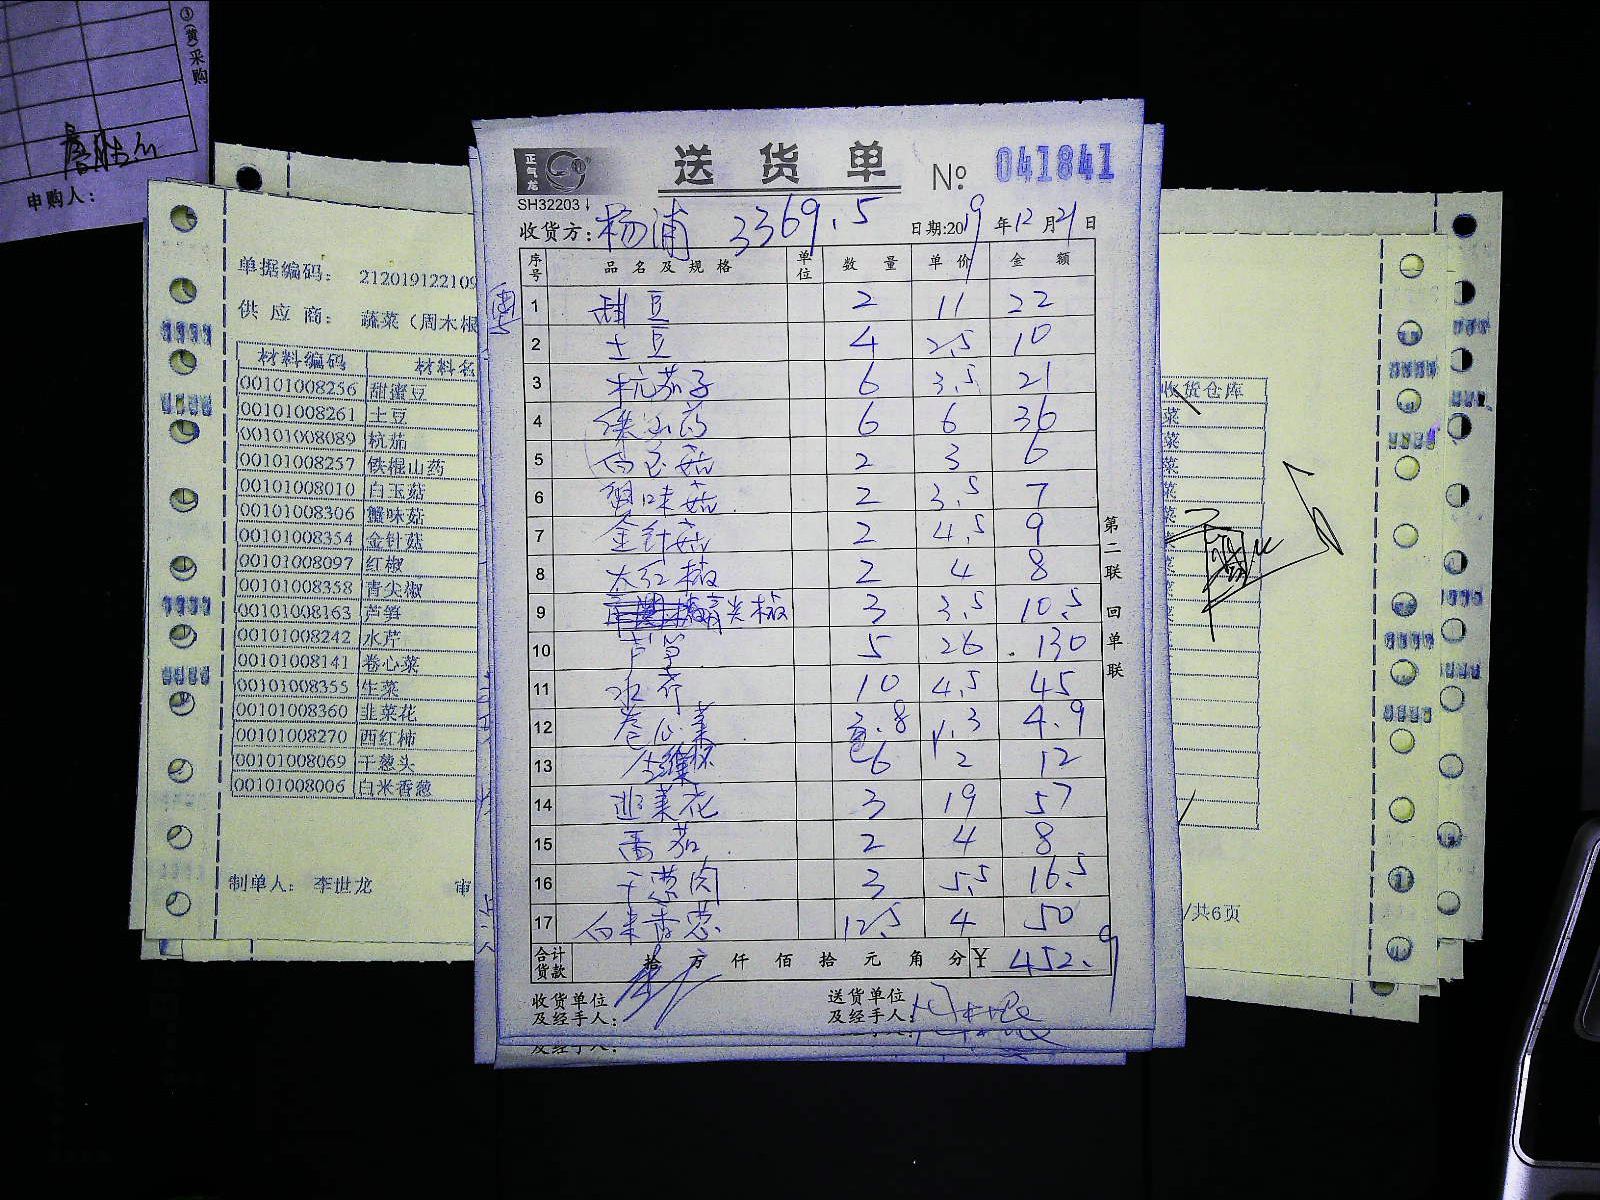 ③(黄)采购
申购人：
送货单 № 041841
正气龙
SH32203
收货方：杨浦 3369.5 日期:2019年12月21日
序号 品名及规格 单位 数量 单价 金额
1 甜豆 2 11 22
2 土豆 4 2.5 10
3 杭茄子 6 3.5 21
4 铁山药 6 6 36
5 白玉菇 2 3 6
6 蟹味菇 2 3.5 7
7 金针菇 2 4.5 9
8 大红椒 2 4 8
9 青尖椒 3 3.5 10.5
10 芦笋 5 26 130
11 水芹 10 4.5 45
12 卷心菜 3.8 1.3 4.9
13 6 2 12
14 韭菜花 3 19 57
15 番茄 2 4 8
16 干葱肉 3 5.5 16.5
17 白米香葱 12.5 4 50
合计货款 拾万仟佰拾元角分 ¥ 452.9
收货单位及经手人：
送货单位及经手人：
第二联 回单联
及经手人：
单据编码： 212019122109
供应商： 蔬菜（周木根
材料编码 材料名
00101008256 甜蜜豆
00101008261 土豆
00101008089 杭茄
00101008257 铁棍山药
00101008010 白玉菇
00101008306 蟹味菇
00101008354 金针菇
00101008097 红椒
00101008358 青尖椒
00101008163 芦笋
00101008242 水芹
00101008141 卷心菜
00101008355 生菜
00101008360 韭菜花
00101008270 西红柿
00101008069 干葱头
00101008006 白米香葱
制单人： 李世龙 审
收货仓库
菜
菜
菜
菜
菜
/共6页